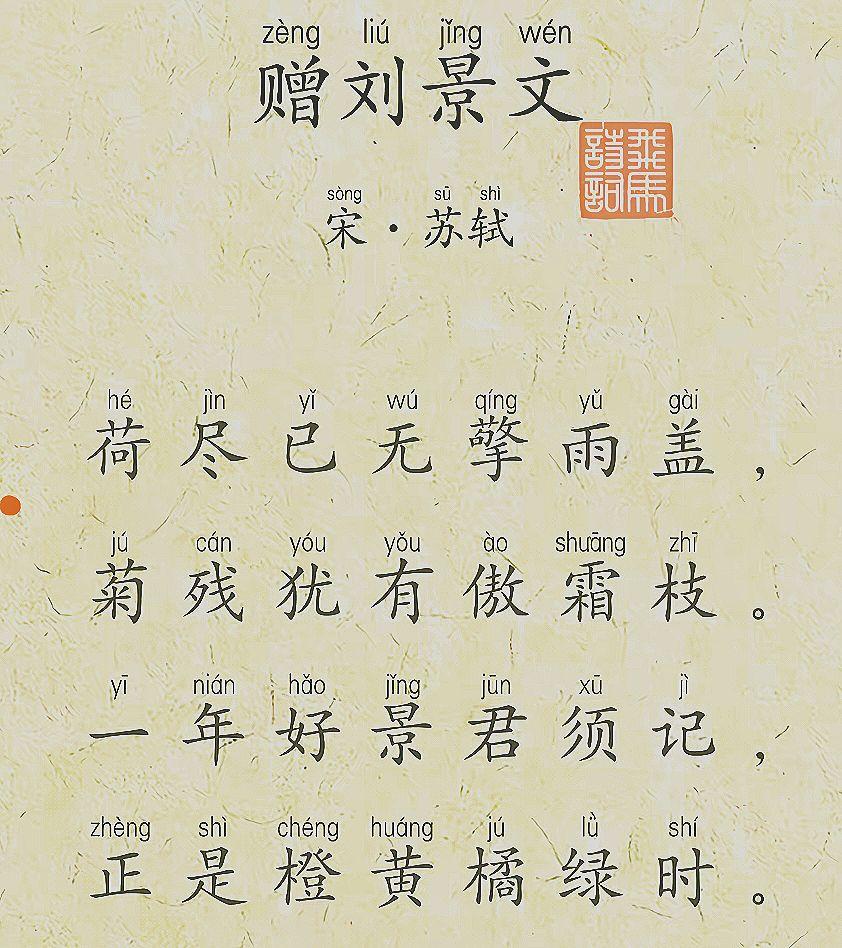 zèng liú jǐng wén
赠刘景文
飛馬
詩詞
sòng sū shì
宋·苏轼
hé jìn yǐ wú qíng yǔ gài
荷尽已无擎雨盖，
jú cán yóu yǒu ào shuāng zhī
菊残犹有傲霜枝。
yī nián hǎo jǐng jūn xū jì
一年好景君须记，
zhèng shì chéng huáng jú lǜ shí
正是橙黄橘绿时。